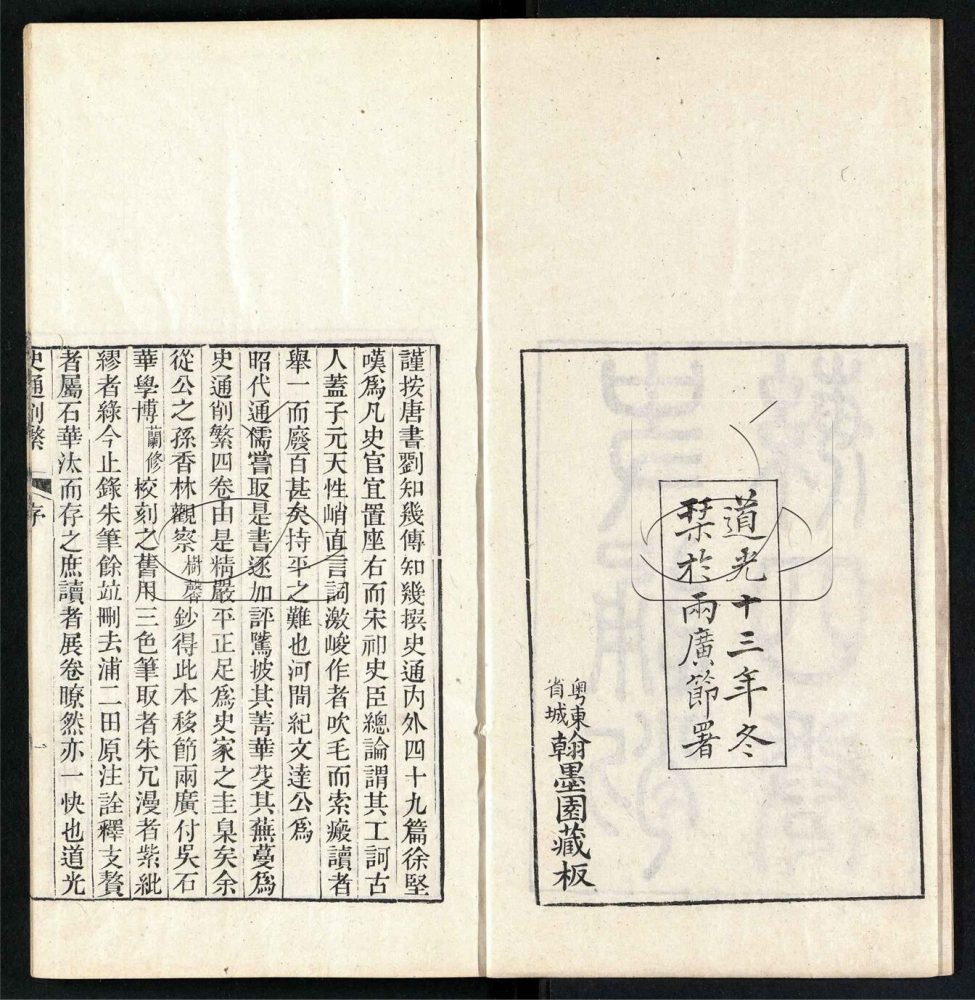 道光十三年冬
栞於兩廣節署
粵東
省城
翰墨園藏板
謹按唐書劉知幾傳知幾撰史通內外四十九篇徐堅
嘆爲凡史官宜置座右而宋祁史臣總論謂其工訶古
人蓋子元天性峭直言詞激峻作者吹毛而索瘢讀者
舉一而廢百甚矣持平之難也河間紀文達公爲
昭代通儒嘗取是書逐加評騭披其菁華芟其蕪蔓爲
史通削繁四卷由是精嚴平正足爲史家之圭臬矣余
從公之孫香林觀察樹馨鈔得此本移節兩廣付吳石
華學博蘭修校刻之舊用三色筆取者朱冗漫者紫紕
繆者綠今止錄朱筆餘竝刪去浦二田原注詮釋支贅
者屬石華汰而存之庶讀者展卷瞭然亦一快也道光
史通削繁 序 一